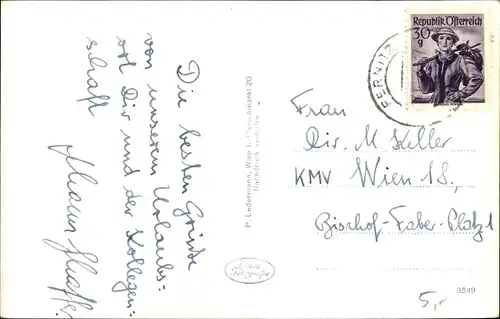 Die besten Grüße
von unserem Urlaubs-
ort Dir und der Kollegen-
schaft
P. Ledermann, Wien I, Fleischmarkt 20
Nachdruck verboten
Republik Österreich
30
g
PERNITZ
Frau
Dir. M Keller
KMV Wien 18.,
Bischof-Faber-Platz 1
3549
5,-